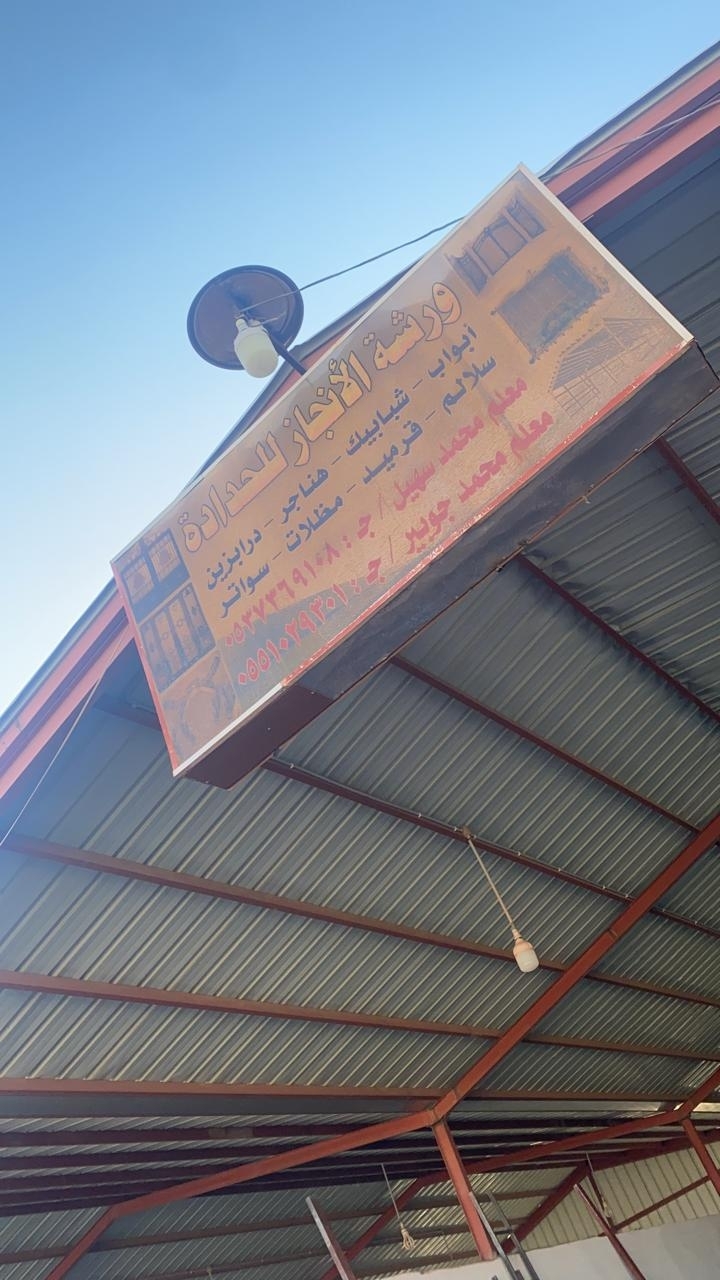 ورشة الأنجاز للحدادة
ابواب - شبابيك - هناجر - درابزين
سلالم - قرميد - مظلات - سواتر
معلم محمد سهيل / جـ : ٠٥٣٧٣٦٩١٠٨
معلم محمد جويير / جـ : ٠٥٥١٠٢٩٣٠١